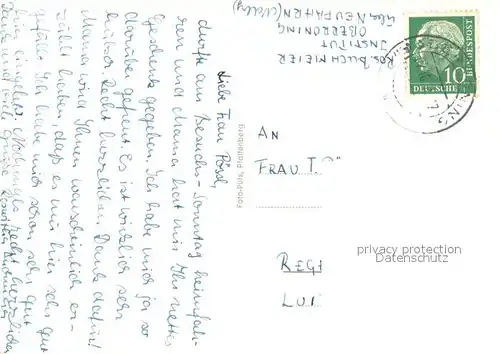 Liebe Frau Pössl,
durfte am Besuchs-Sonntag heimfah-
ren und Mama hat mir Ihr nettes
Geschenk gegeben. Ich habe mich ja so
darüber gefreut. Es ist wirklich sehr
Recht herzlichen Dank dafür!
Mama wird Ihnen wahrscheinlich er-
zählt haben, daß es mir hier sehr gut
gefällt. Ich habe mich schon sehr gut
recht herzlichen
Dank und viele Grüße
ROS. BUCHMEIER
INSTITUT
OBERRONING
über NEUFAHRN (Ndby)
Foto-Püls, Plattenberg
DEUTSCHE
BUNDESPOST
10
AN
FRAU
REGE
LUI
privacy protection
Datenschutz